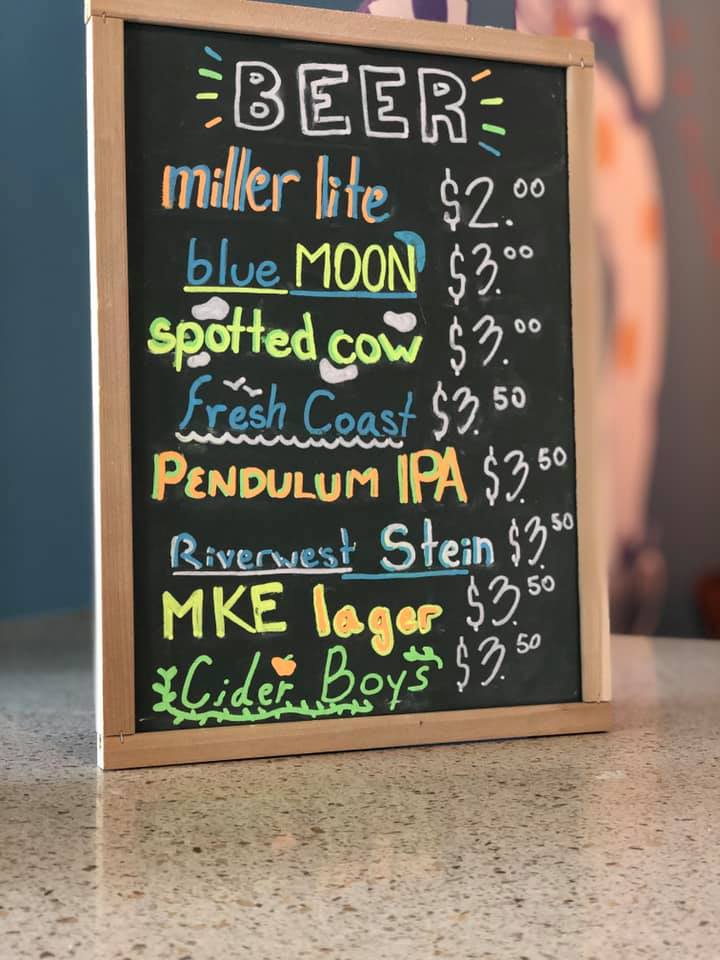 BEER
miller lite $2.00
blue MOON $3.00
spotted cow $3.00
fresh Coast $3.50
PENDULUM IPA $3.50
Riverwest Stein $3.50
MKE lager $3.50
Cider Boys $3.50